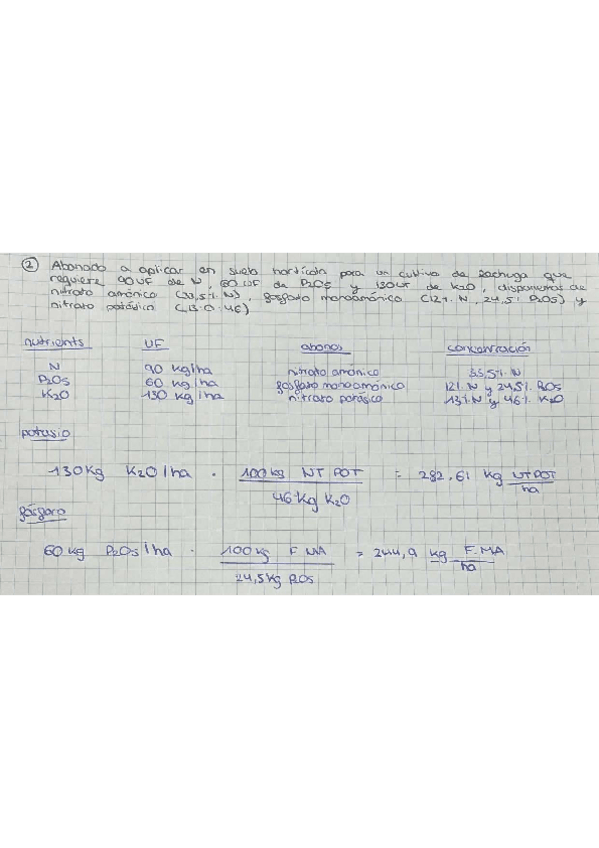 ② Abonado a aplicar en suelo hortícola para un cultivo de lechuga que
requiere 90UF de N, 60 UF de P2O5 y 130UF de K2O, disponemos de
nitrato amónico (33,5% N), fosfato monoamónico (12% N, 24,5% P2O5) y
nitrato potásico (13-0-46)
nutrients UF abonos concentración
N 90 kg/ha nitrato amónico 33,5% N
P2O5 60 kg/ha fosfato monoamónico 12% N y 24,5% P2O5
K2O 130 kg/ha nitrato potásico 13% N y 46% K2O
potasio
130kg K2O/ha · 100kg NT POT / 46 kg K2O = 282,61 kg NT POT / ha
fósforo
60 kg P2O5/ha · 100 kg F.MA / 24,5kg P2O5 = 244,9 kg F.MA / ha